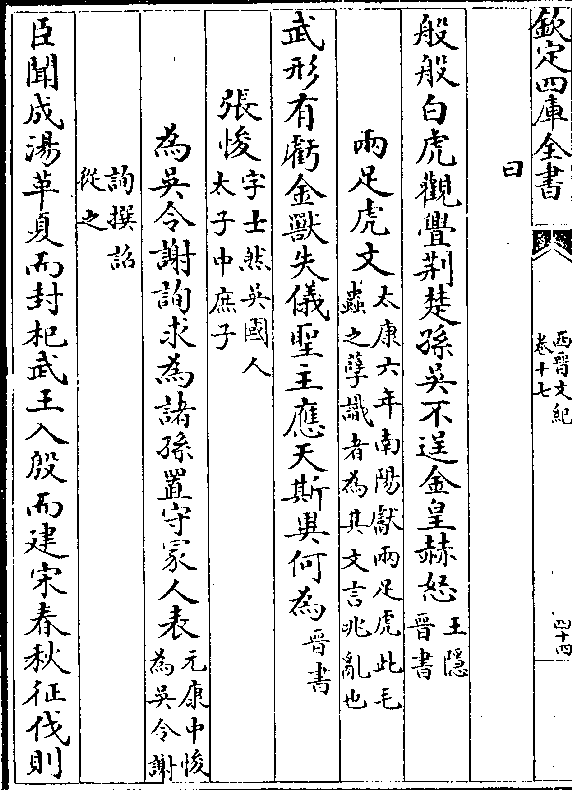 欽定四庫全書
西晉文紀
卷十七
四十四
曰
般般白虎觀舋荆楚孫吳不逞金皇赫怒
王隱
晉書
兩足虎文
太康六年南陽獻兩足虎此毛
蟲之孽識者為其文言兆亂也
武形有虧金獸失儀聖主應天斯異何為
晉書
張悛
字士然吳國人
太子中庶子
為吳令謝詢求為諸孫置守冡人表
元康中悛
為吳令謝
詢撰詔
從之
臣聞成湯革夏而封杞武王入殷而建宋春秋征伐則